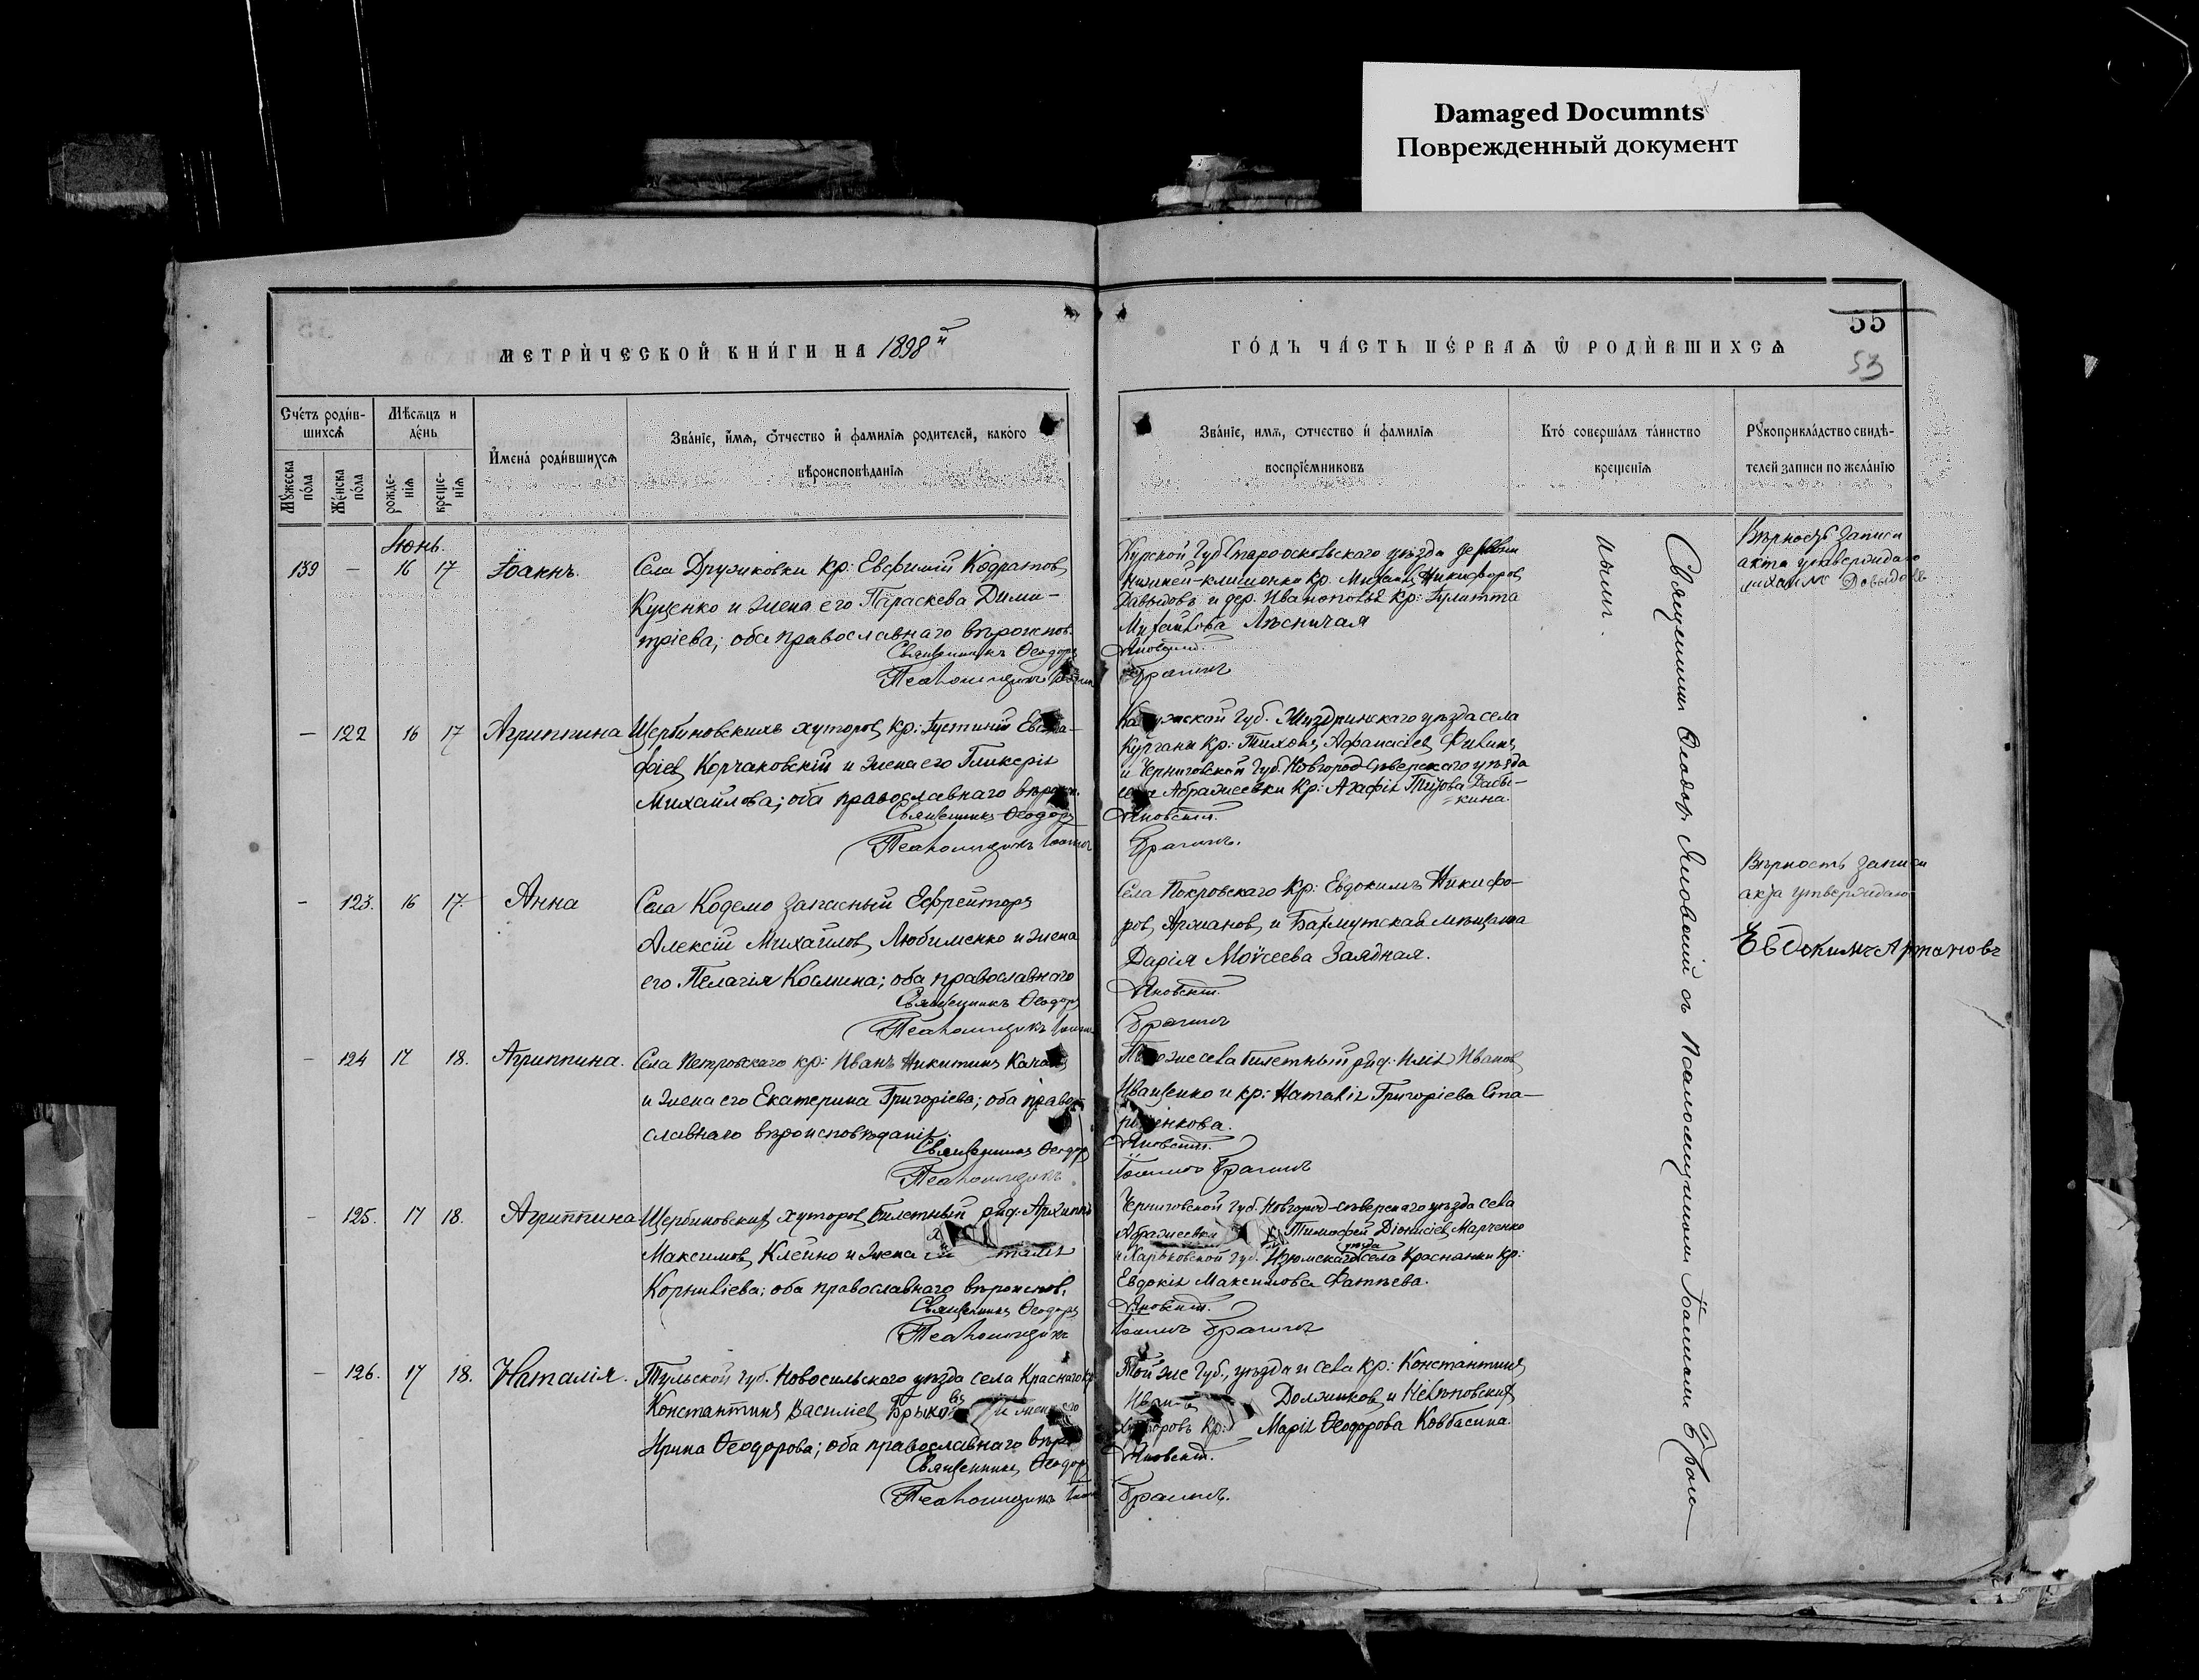 Damaged Documnts
Поврежденный документ
МЕТРИ́ЧЕСКОЙ КНИ́ГИ НА 1898й
ГО́ДЪ ЧА́СТЬ ПЕ́РВАѦ Ѡ РОДИ́ВШИХСѦ
55
53
Сче́тъ роди́в-
шихсѧ
Мѣ́сѧцъ и
де́нь
Мꙋ́жеска
по́ла
Же́нска
по́ла
рожде-
нїѧ
креще-
нїѧ
И҆мена́ роди́вшихсѧ
Зва́нїе, и҆́мѧ, ѻ҆́тчество и҆ фами́лїѧ родителей, како́го
вѣроисповѣ́данїѧ
Зва́нїе, имѧ, ѻтчество и҆ фамилїѧ
воспрїе́мниковъ
Кто́ соверша́лъ та́инство
креще́нїѧ
Рꙋ́коприкла́дство свидѣ́-
телей записи по жела́нїю
Іюнь.
139 — 16 17 Іоаннъ.
Села Дружковки кр: Евфимій Кодратов
Куценко и жена его Параскева Дими-
тріева; оба православнаго вѣроиспов.
Священникъ Ѳеодоръ
Псаломщикъ
Курской губ Старооскольскаго уѣзда деревни
кр. Михаилъ Никифоров
Давыдовъ и дер. Иванополья кр: Іулитта
Михайлова Лѣсничая
Яновскій.
Брагинъ
Вѣрность записи
акта утверждаю
Давыдовъ
— 122 16 17 Агриппина
Щербиновскихъ хуторов кр: Іустиній Евста-
фіев Корчаковскій и жена его Гликерія
Михайлова; оба православнаго вѣроисп.
Священникъ Ѳеодоръ
Псаломщикъ Іоаннъ
Калужской губ. Жиздринскаго уѣзда села
Кургани кр: Тихонъ Афанасіев Филинъ
и Черниговской губ. Новгород-Сѣверскаго уѣзда
села Абражеевки кр: Агафія Титова
кина.
Яновскій.
Брагинъ.
— 123. 16 17 Анна
Села Кодемо запасный Ефрейторъ
Алексій Михайлов Любименко и жена
его Пелагія Космина; оба православнаго
Священникъ Ѳеодоръ
Псаломщикъ Іоаннъ
Села Покровскаго кр: Евдокимъ Никифо-
ров Аржанов и Бахмутская мѣщанка
Дарія Моѵсеева Заядная.
Яновскій.
Брагинъ
Вѣрность записи
акта утверждаю
Евдокимъ Аржановъ
— 124 17 18. Агриппина.
Села Петровскаго кр: Иванъ Никитинъ
и жена его Екатерина Григоріева; оба право-
славнаго вѣроисповѣданія.
Священникъ Ѳеодоръ
Псаломщикъ
Того же села билетный ряд: Илія Иванов
Иващенко и кр: Наталія Григоріева Ста-
риченкова.
Яновскій.
Іоаннъ Брагинъ
— 125. 17 18. Агриппина
Щербиновских хуторов билетный ряд. Архиппъ
Максимов Клейно и жена
Корниліева; оба православнаго вѣроиспов.
Священникъ Ѳеодоръ
Псаломщикъ
Черниговской губ. Новгород-сѣверскаго уѣзда села
Абражеевки Тимофей Діонисіев Марченко
и Харьковской губ. Изюмскаго уѣзда села Краснянки кр:
Евдокія Максимова Фатѣева.
Яновскій.
Іоаннъ Брагинъ
— 126. 17 18. Наталія.
Тульской губ. Новосильскаго уѣзда села Краснаго кр
Константинъ Василіев и жена его
Ирина Ѳеодорова; оба православнаго вѣро
Священникъ Ѳеодоръ
Псаломщикъ
Той же губ., уѣзда и села кр: Константинъ
Должиков и Нелѣповских
хуторовъ кр: Марія Ѳеодорова Ковбасина.
Яновскій.
Брагинъ.
Священникъ Ѳеодор Яновскій съ Псаломщикомъ Іоанномъ Браги-
нымъ.